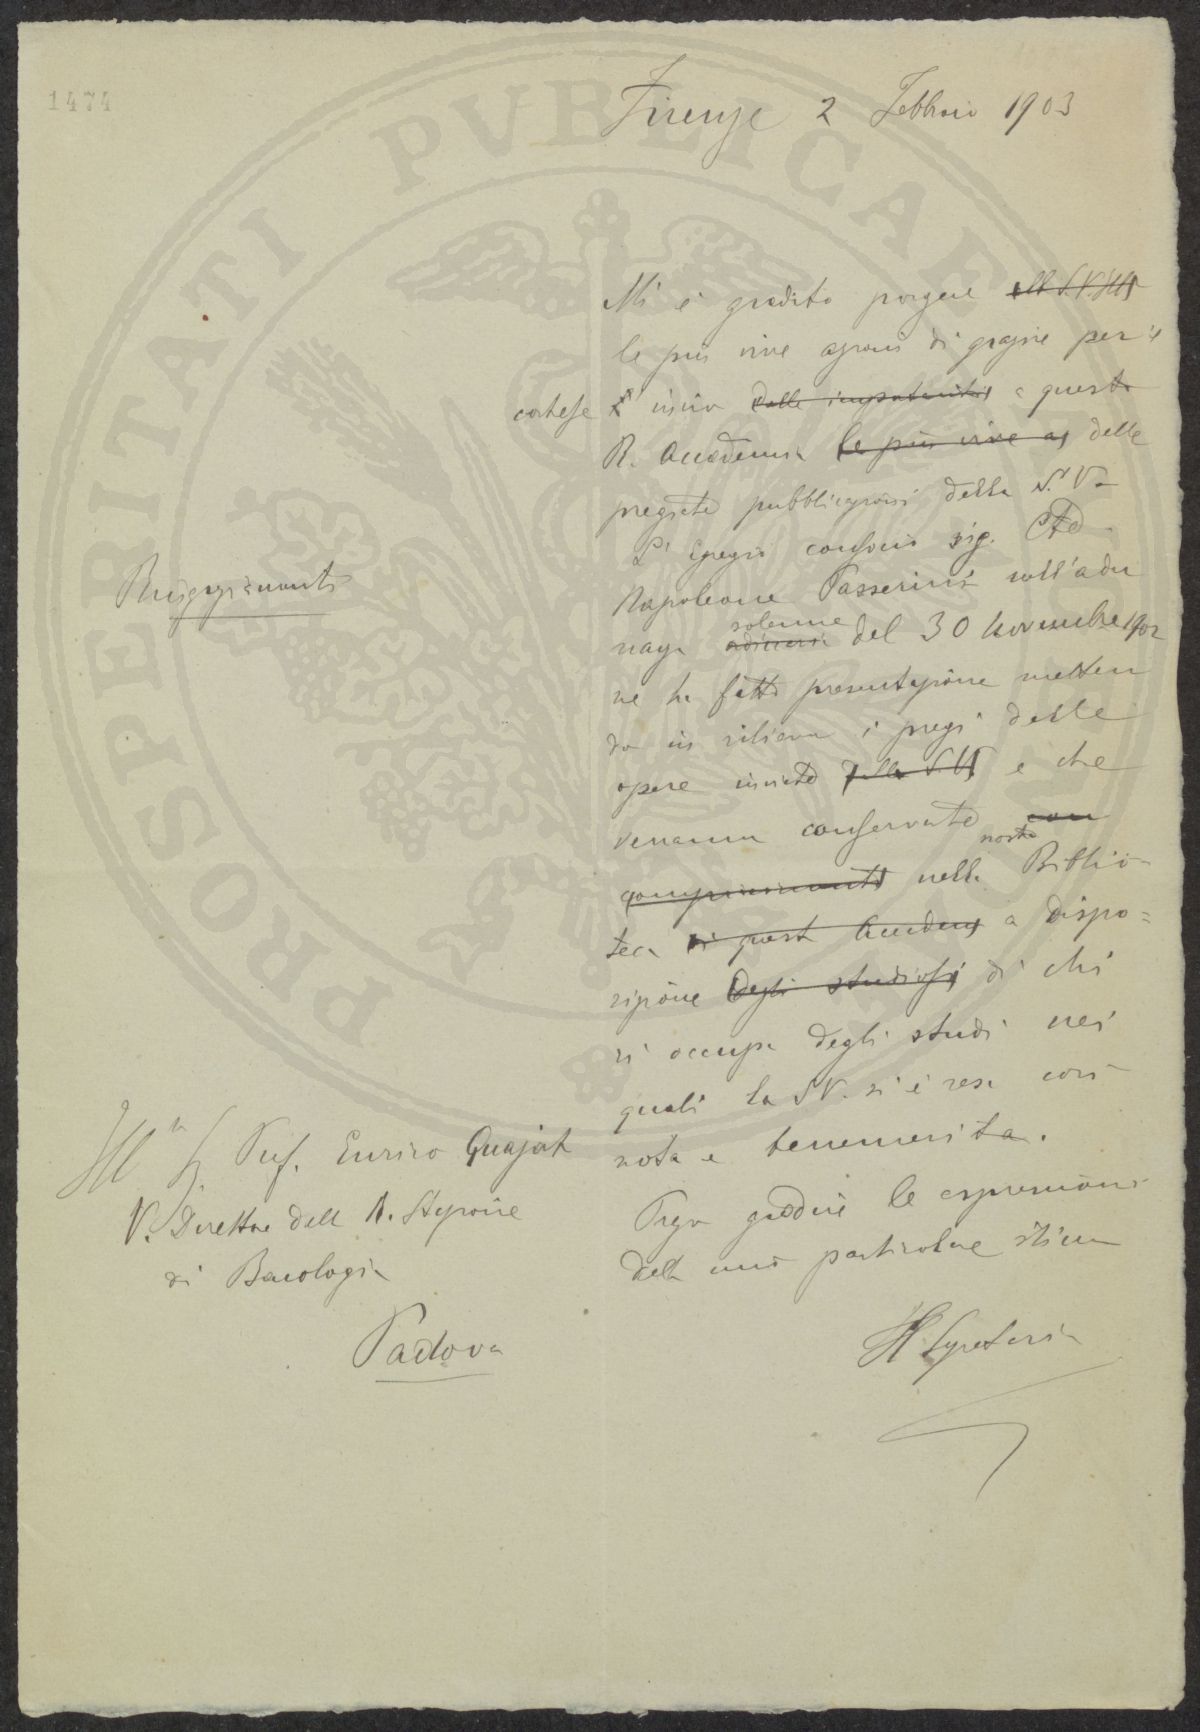 1474
Firenze 2 Febbraio 1903
Mi è gradito porgere alla S.V. Ill
le più vive azioni di grazie per il
cortese L' invio delle importanti a questa
R. Accademia le più vive az delle
pregiate pubblicazioni della S.V.
L' Egregio consocio sig. Cte
Ringraziamenti
Napoleone Passerini nell'adu
nanza ordinaria solenne del 30 Novembre 1902
ne ha fatto presentazione metten
do in rilievo i pregi delle
opere inviate dalla S.V. e che
verranno conservate con
compiacimento nella nostra Biblio-
teca di quest Accadem a dispo=
sizione degli studiosi di chi
si occupa degli studi nei
quali la S.V. si è resa così
nota e benemerita.
Prego gradire le espressioni
della mia particolare stima
Il Segretario
Ill Sig. Prof. Enrico Quajat
V. Direttore della R. Stazione
di Bacologia
Padova
PROSPERITATI PVBLICAE